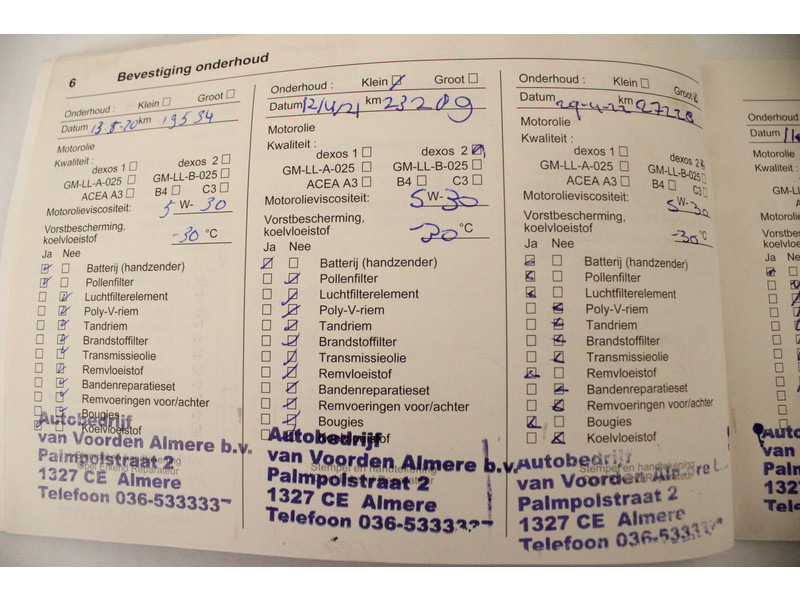 6 Bevestiging onderhoud
Onderhoud : Klein Groot
Datum 13-8-20 km 19534
Motorolie
Kwaliteit :
dexos 1 dexos 2
GM-LL-A-025 GM-LL-B-025
ACEA A3 B4 C3
Motorolieviscositeit: 5 W- 30
Vorstbescherming,
koelvloeistof -30 °C
Ja Nee
Batterij (handzender)
Pollenfilter
Luchtfilterelement
Poly-V-riem
Tandriem
Brandstoffilter
Transmissieolie
Remvloeistof
Bandenreparatieset
Remvoeringen voor/achter
Bougies
Koelvloeistof
Autobedrijf
van Voorden Almere b.v.
Palmpolstraat 2
1327 CE Almere
Telefoon 036-533333
Onderhoud : Klein Groot
Datum 12/4/21 km 23209
Motorolie
Kwaliteit :
dexos 1 dexos 2
GM-LL-A-025 GM-LL-B-025
ACEA A3 B4 C3
Motorolieviscositeit: 5 W- 30
Vorstbescherming,
koelvloeistof -30 °C
Ja Nee
Batterij (handzender)
Pollenfilter
Luchtfilterelement
Poly-V-riem
Tandriem
Brandstoffilter
Transmissieolie
Remvloeistof
Bandenreparatieset
Remvoeringen voor/achter
Bougies
Autobedrijf
van Voorden Almere b.v.
Stempel en handtekening
Palmpolstraat 2
1327 CE Almere
Telefoon 036-5333337
Onderhoud : Klein Groot
Datum 29-4-22 km 27228
Motorolie
Kwaliteit :
dexos 1 dexos 2
GM-LL-A-025 GM-LL-B-025
ACEA A3 B4 C3
Motorolieviscositeit: 5 W- 30
Vorstbescherming,
koelvloeistof -30 °C
Ja Nee
Batterij (handzender)
Pollenfilter
Luchtfilterelement
Poly-V-riem
Tandriem
Brandstoffilter
Transmissieolie
Remvloeistof
Bandenreparatieset
Remvoeringen voor/achter
Bougies
Koelvloeistof
Autobedrijf
Stempel en handtekening
van Voorden
Palmpolstraat 2
1327 CE Almere
Telefoon 036-53333
Onderhoud
Datum
Motorolie
Kwaliteit :
Ja